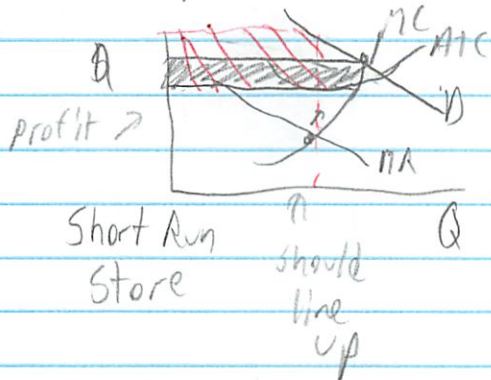 MC
ATC
D
profit →
MR
Short Run
Store
Q
should
line
up